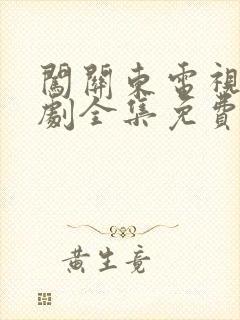 闖關東電視
劇全集免費
黃生竟